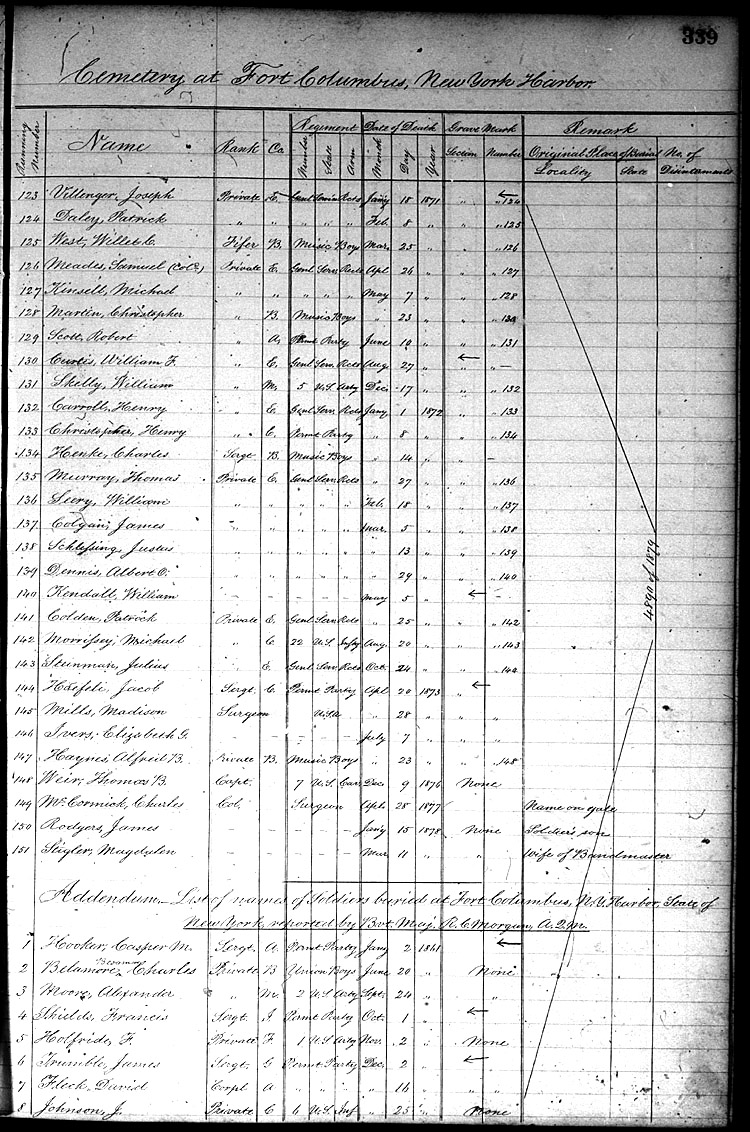 339
Cemetery at Fort Columbus, New York Harbor.
Running Number Name Rank Co. Regiment Number State Arm Date of Death Month Day Year Grave Mark Section Number Remark Original Place of Burial Locality State No. of Disinterments
123 Villenger, Joseph Private E. Genl Servic Rcts Jany 18 1871 " " 124
124 Daley, Patrick " " " " " Feb. 8 " " " 125
125 West, Willet C. Fifer B. Music Boys Mar. 25 " " " 126
126 Meades, Samuel (Cold) Private E. Genl Serv. Rcts Apl 26 " " " 127
127 Kinsell, Michael " " " " " May 7 " " " 128
128 Martin, Christopher " B. Music Boys " 23 " " " 130
129 Scott, Robert " A. Pmt Party June 10 " " " 131
130 Curtis, William F. " E. Genl Serv. Rcts Aug. 27 " " –
131 Skelly, William " M. 5 U.S. Arty Dec. 17 " " " 132
132 Carroll, Henry " E. Genl Serv. Rcts Jany 1 1872 " " 133
133 Christopher, Henry " C. Permt Party " 8 " " " 134
134 Henke, Charles Sergt B. Music Boys " 14 " " –
135 Murray, Thomas Private E. Genl Serv Rcts " 27 " " " 136
136 Leery, William " " " " " Feb. 18 " " " 137
137 Colgan, James " " " " " Mar. 5 " " " 138
138 Schlessing, Justus " " " " " " 13 " " " 139
139 Dennis, Albert C. " " " " " " 29 " " " 140
140 Kendall, William May 5 " –
141 Colden, Patrick Private E. Genl Serv Rcts " 25 " " " 142
142 Morrissey, Michael " C. 22 U.S. Infy Aug. 20 " " " 143
143 Steinman, Julius E. Genl Serv. Rcts Oct. 24 " " " 144
144 Haefeli, Jacob Sergt. C. Permt Party Apl 20 1873 "
145 Mills, Madison Surgeon U.S.A " 28 " " "
146 Ivers, Elizabeth G. July 7 " " "
147 Haynes, Alfred B. Private B. Music Boys " 23 " " " 148
148 Weir, Thomas B. Capt. 7 U.S. Cav. Dec. 9 1876 None
149 McCormick, Charles Col. Surgeon Apl. 28 1877 Name on gate
150 Rodgers, James – – – – – Jany 15 1878 None Soldier's son
151 Stigler, Magdalen – – – – – Mar. 11 " " Wife of Bandmaster
4890 of 1879
Addendum.–List of names of Soldiers buried at Fort Columbus, N.Y. Harbor, State of
New York, reported by Bvt. Maj. R. C. Morgan, A.Q.M.
1 Hooker, Casper M. Sergt. A. Permt Party Jany 2 1861
2 Belamore, Charles Private B Union Boys June 20 " None
3 Moore, Alexander " M. 2 U.S. Arty Sept. 24 " "
4 Shields, Francis Sergt. I Permt Party Oct. 1 "
5 Holfride, F. Private F 1 U.S. Arty Nov. 2 " None
6 Trumble, James Sergt. G Permt Party Dec. 2 "
7 Fleck, David Corpl A " " " " 16 " "
8 Johnson, J. Private C 6 U.S. Inf " 25 " None